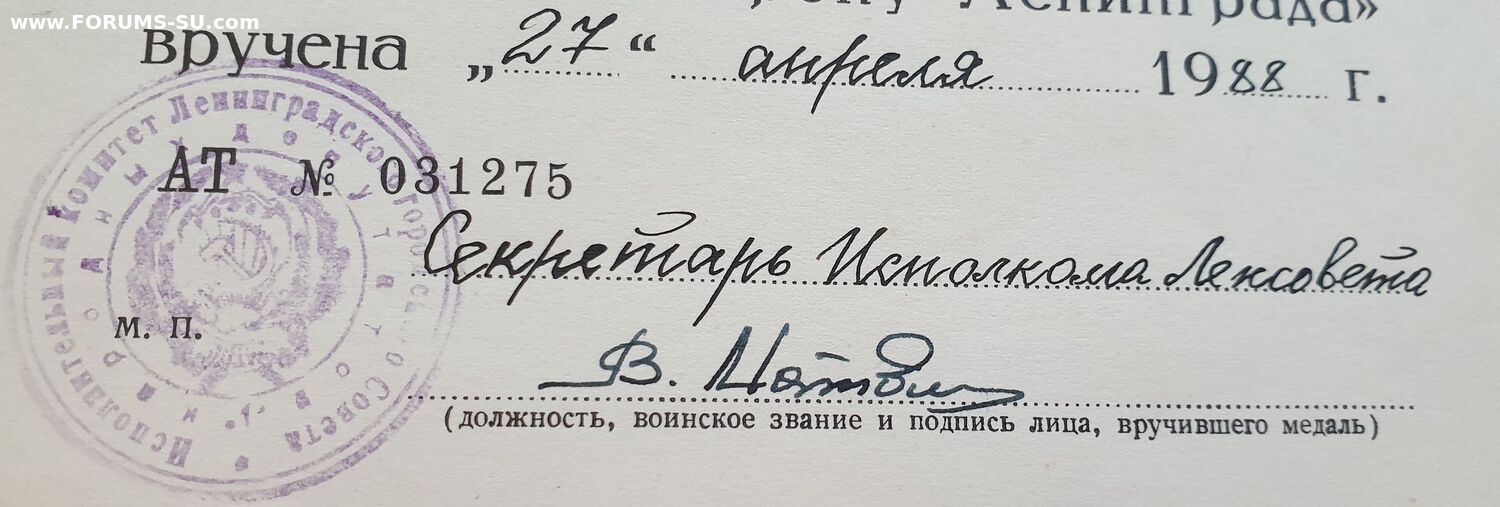 www.FORUMS-SU.com
Ленинграда»
вручена „27“ апреля 1988 г.
АТ № 031275
Секретарь Исполкома Ленсовета
м. п.
В.
(должность, воинское звание и подпись лица, вручившего медаль)
Исполнительный Комитет Ленинградского городского Совета
народных депутатов